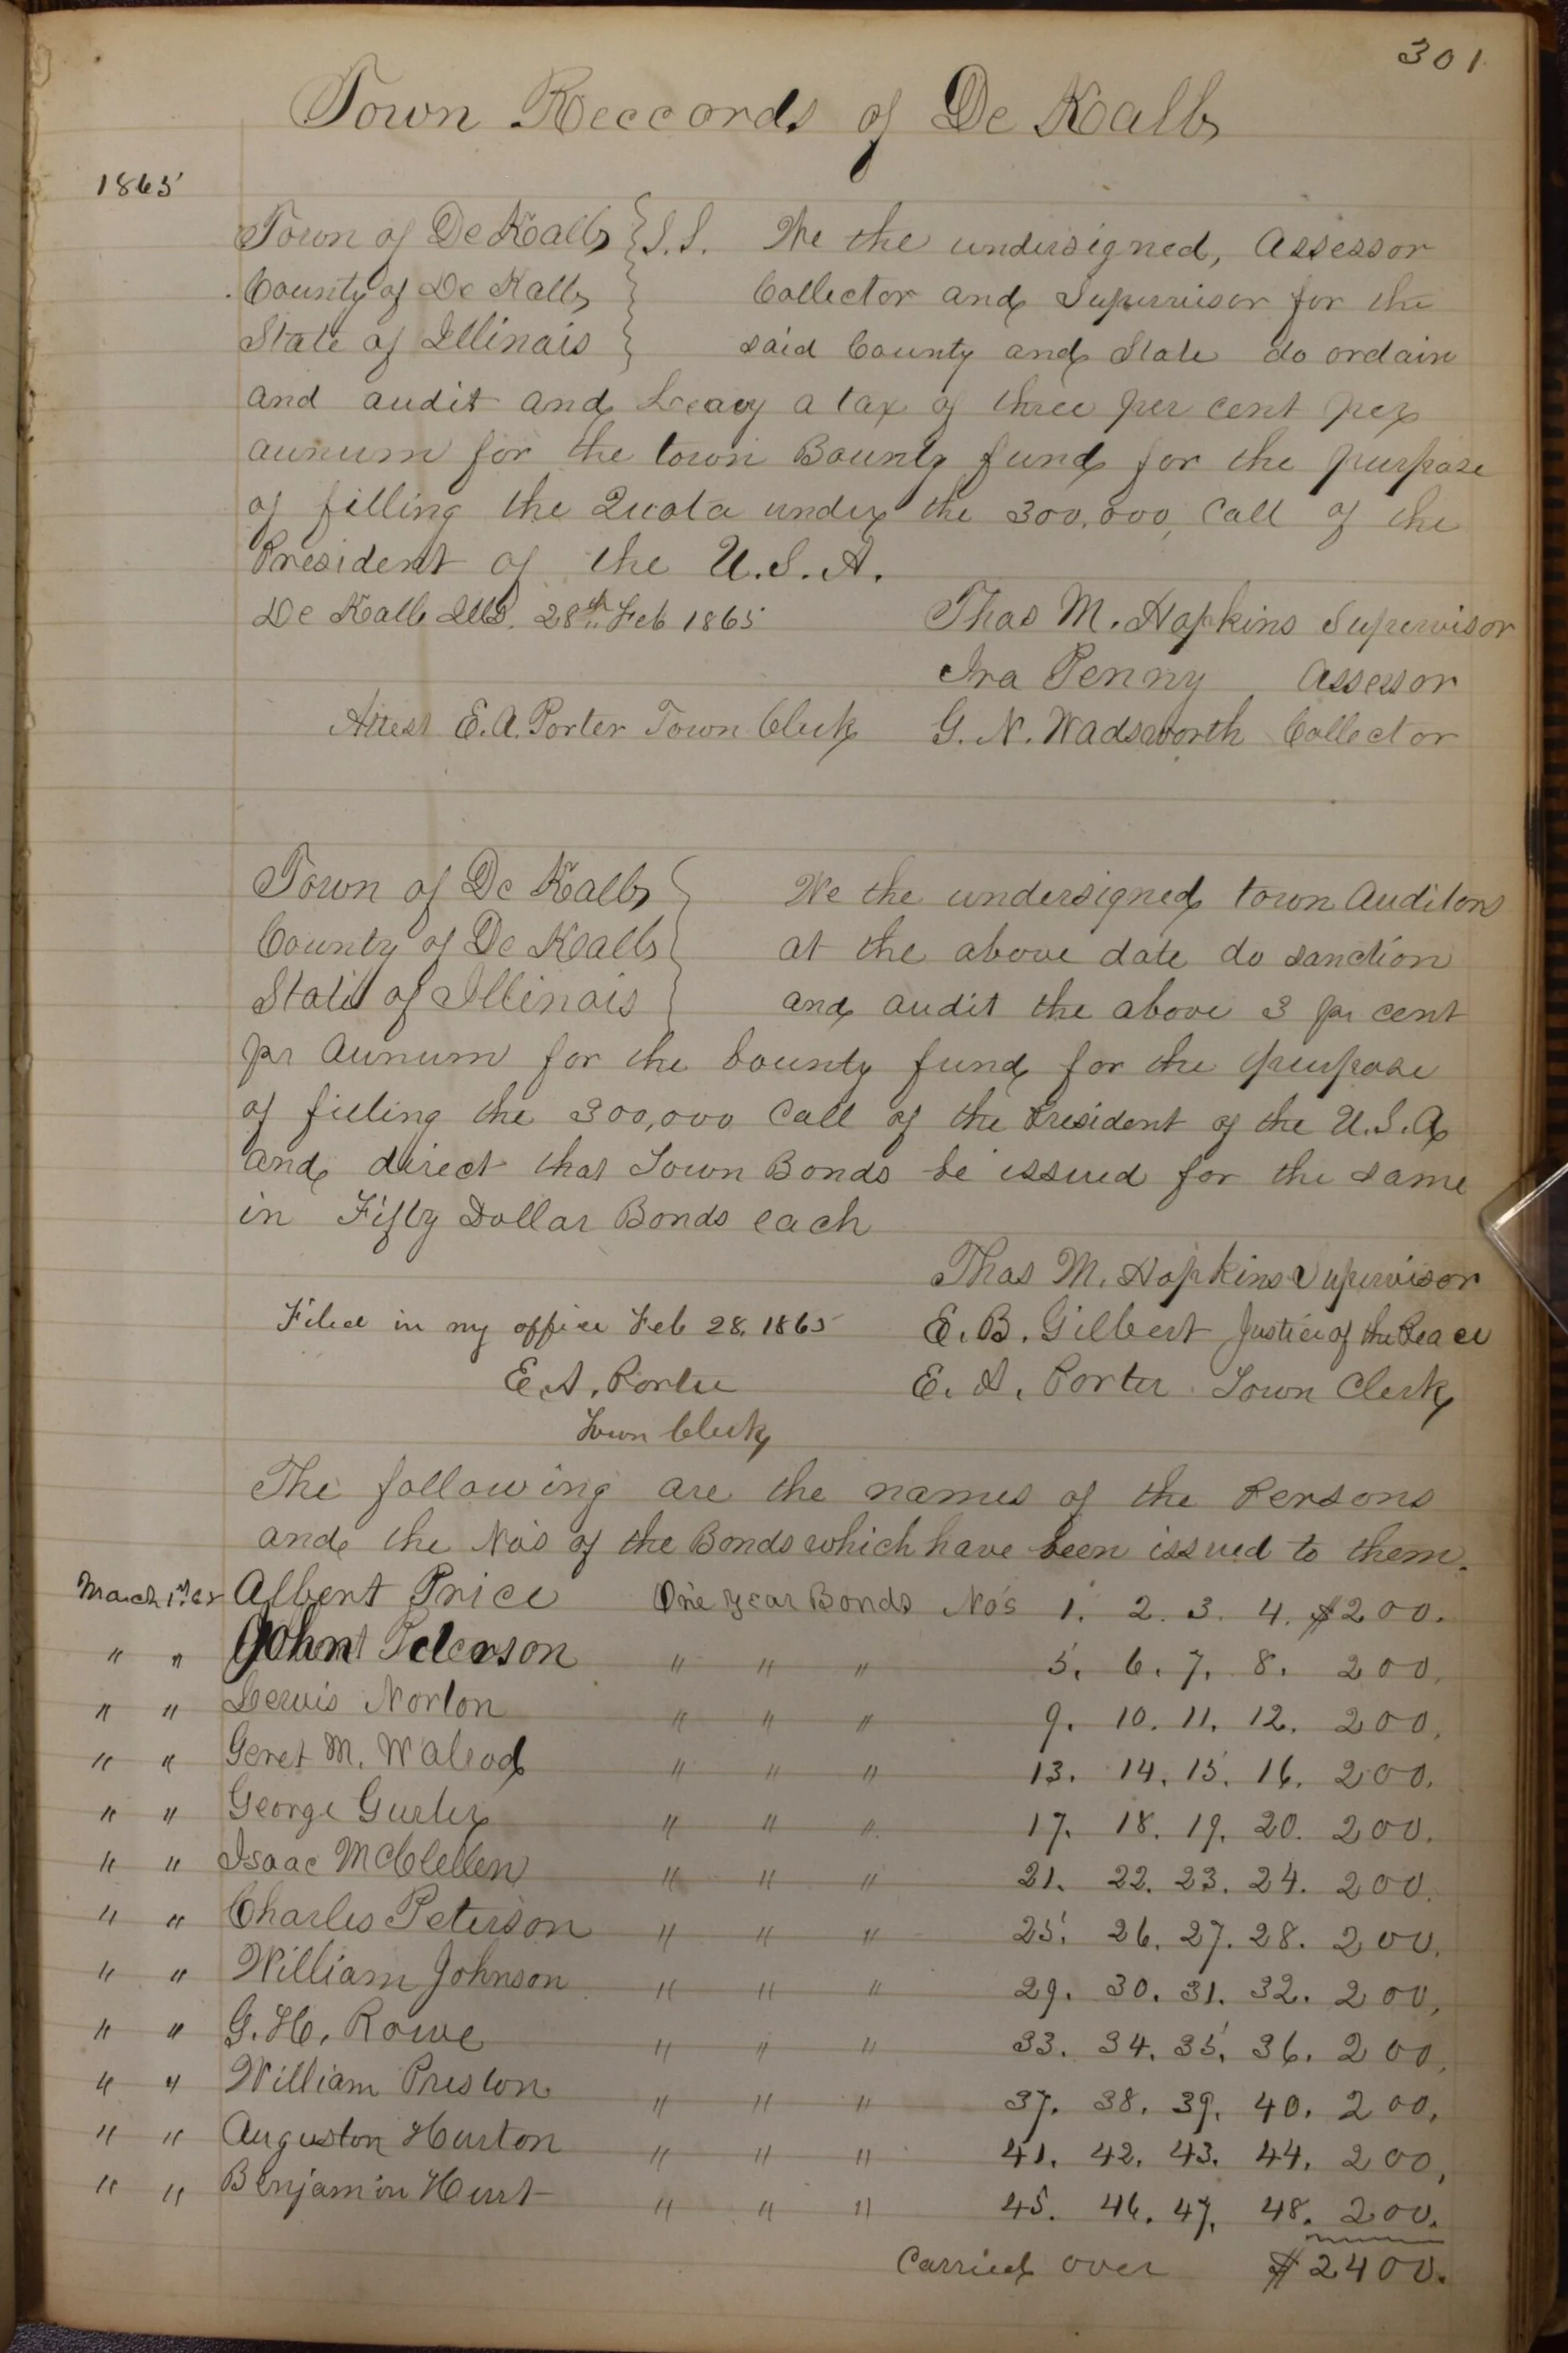 301
Town Reccords of De Kalb
1865
Town of De Kalb } S.S. We the undersigned, Assessor
County of De Kalb } Collector and Supervisor for the
State of Illinois } said County and State do ordain
and audit and Leavy a tax of three per cent per
annum for the town Bounty fund for the purpose
of filling the Quota under the 300,000, Call of the
President of the U.S.A.
De Kalb Ills. 28th Feb 1865 Thos M. Hopkins Supervisor
Ira Penny Assessor
Attest E.A. Porter Town Clerk G. N. Wadsworth Collector
Town of De Kalb } We the undersigned town Auditors
County of De Kalb } at the above date do sanction
State of Illinois } and audit the above 3 pr cent
pr Annum for the bounty fund for the purpose
of filling the 300,000 Call of the President of the U.S.A
and direct that Town Bonds be issued for the same
in Fifty Dollar Bonds each
Thos M. Hopkins Supervisor
Filed in my office Feb 28, 1865 E. B. Gilbert Justice of the Peace
E. A. Porter E. A. Porter Town Clerk
Town Clerk
The following are the names of the Persons
and the No's of the Bonds which have been issued to them.
March 1st 65 Albert Price One year Bonds No's 1. 2. 3. 4. $200.
" " John Peterson " " " 5. 6. 7. 8. 200.
" " Lewis Norton " " " 9. 10. 11. 12. 200.
" " Geret M. Walrod " " " 13. 14. 15. 16. 200.
" " George Gurler " " " 17. 18. 19. 20. 200.
" " Isaac McClellen " " " 21. 22. 23. 24. 200.
" " Charles Peterson " " " 25. 26. 27. 28. 200.
" " William Johnson " " " 29. 30. 31. 32. 200.
" " G. H. Rowe " " " 33. 34. 35. 36. 200.
" " William Preston " " " 37. 38. 39. 40. 200.
" " Auguston Hurton " " " 41. 42. 43. 44. 200.
" " Benjamin Hurt " " " 45. 46. 47. 48. 200.
Carried over $2400.